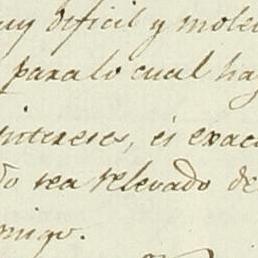 uy dificil y moles
paralo cual ha
intereses, es exac
do sea relevado de
migo.